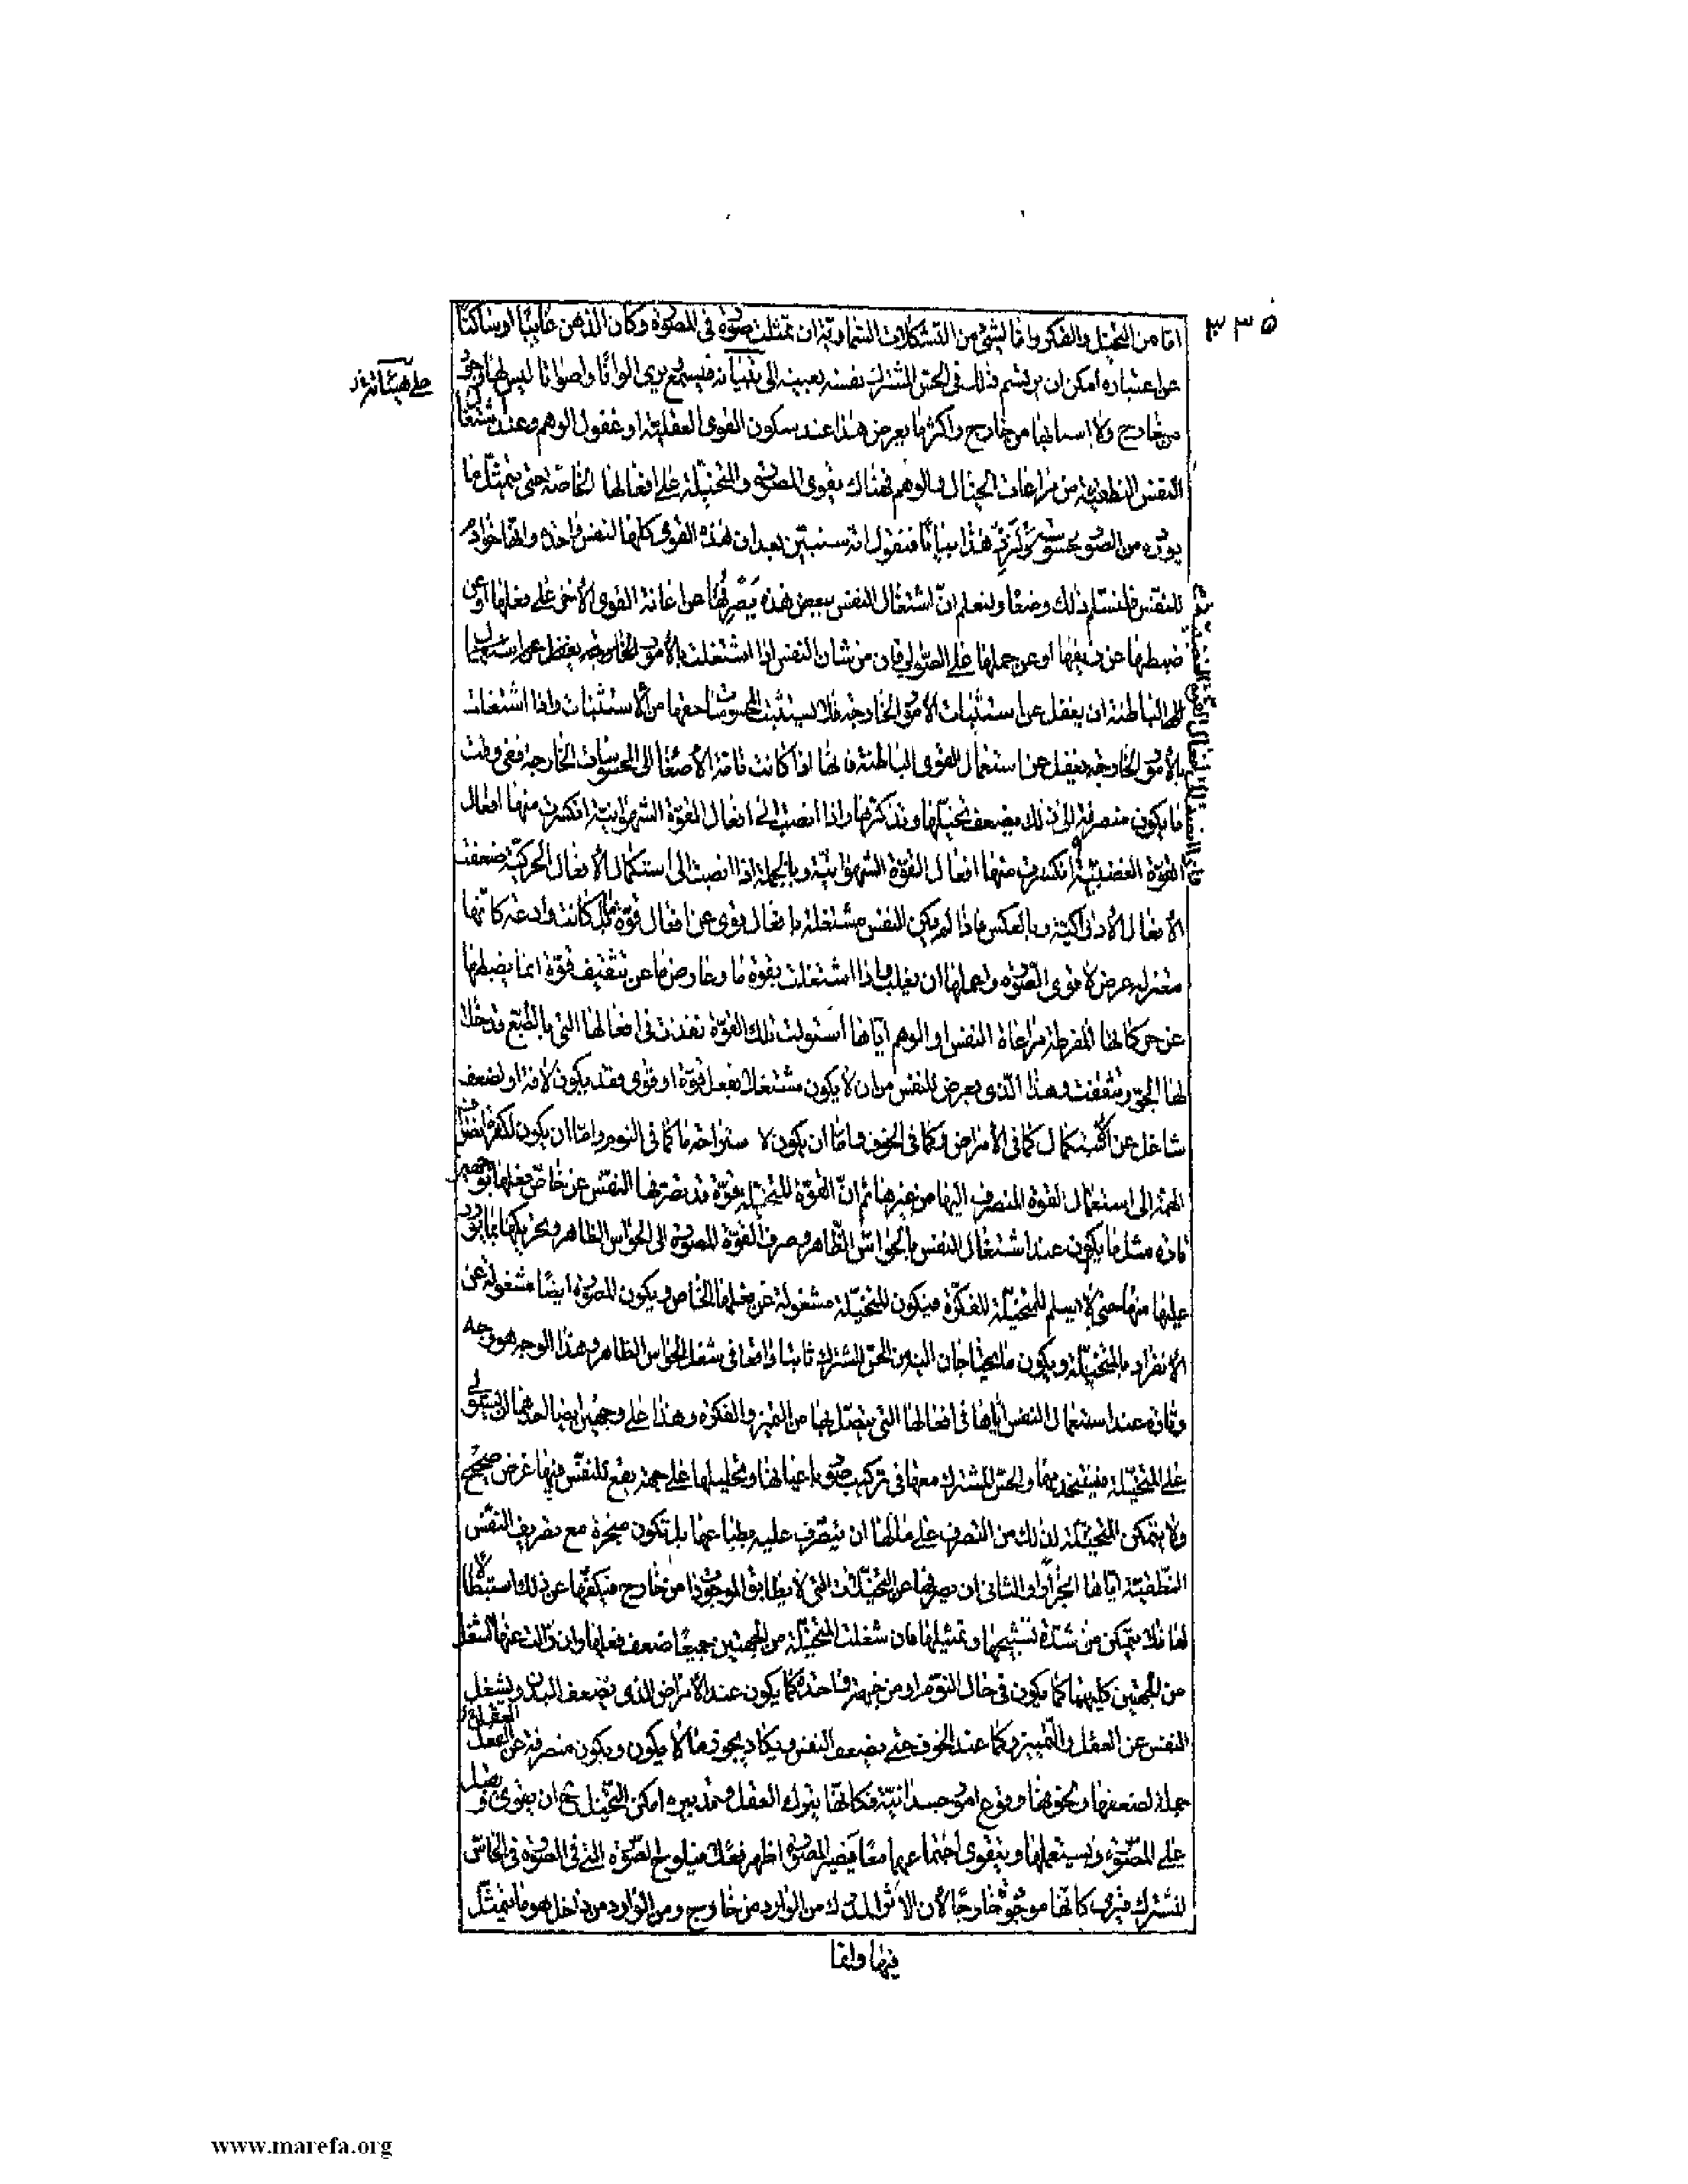 ٣٣٥
اما من التخيل والفكر واما لشئ من التشكلات السماوية ان تمثلت صورة فى المصورة وكان الذهن غايبا او ساكنا
عن اعتباره امكن ان يرتسم ذلك فى الحس المشترك نفسه بعينه الى هيئاته فيسمع ويرى الوانا واصواتا ليس لها وجود
على هيئاته
من خارج ولا اسبابها من خارج واكثر ما يعرض هذا عند سكون القوى العقلية او غفول الوهم وعند اشتغال
النفس النطقية من مراعات الخيال والوهم فهناك يقوى المصورة والمتخيلة على افعالها الخاصة حتى يتمثل ما
يورده من الصور محسوسة ولنزد هذا بيانا فنقول انه سنبين بعد ان هذه القوى كلها لنفس واحدة وانها خوادم
للنفس فلنسلم ذلك وضعا ولنعلم ان اشتغال النفس ببعض هذه يصرفها عن اعانة القوى الاخرى على فعلها او عن
ضبطها عن زيغها او عن حملها على الصواب فان من شان النفس اذا اشتغلت بالامور
الباطنة ان يغفل عن استثبات الامور الخارجة فلا يستثبت المحسوسات حقها من الاستثبات واذا اشتغلت
بالامور الخارجة يغفل عن استعمال القوى الباطنة فانها اذا كانت تامة الاصغا الى المحسوسات الخارجة ففى وقت
ما يكون منصرفة الى ذلك يضعف تخيلها وتذكرها واذا انصبت الى افعال القوة الشهوانية انكسرت منها افعال
القوة الغضبية انكسرت منها افعال القوة الشهوانية وبالجملة اذا انصبت الى استكمال الافعال الحركية ضعفت
الافعال الادراكية وبالعكس فاذا لم يكن النفس مشتغلة بافعال قوى عن افعال قوة بل كانت وادعة كانها
معتزلة عرض لاقوى القوى واعملها ان يغلب واذا اشتغلت بقوة ما وعارض ما عن تثقيف قوة انما يضبطها
عن حركاتها المفرطة مراعاة النفس او الوهم اياها استولت تلك القوة نفذت فى افعالها التى بالطبع قد خلا
لها الجو وهذا الذى يعرض للنفس من ان لا يكون مشتغلا بفعل قوة او قوى فقد يكون لافة او لضعف
شاغل عن الاستكمال كما فى الامراض وكما فى الخوف واما ان يكون لاستراحة ما كما فى النوم واما ان يكون لكثرة انصراف
الهمة الى استعمال القوة المنصرف اليها من غيرها ثم ان القوة المتخيلة قوة قد تصرفها النفس عن خاص فعلها بوجهين
تارة مثل ما يكون عند اشتغال النفس بالحواس الظاهرة وصرف القوة المصورة الى الحواس الظاهرة وتحريكها بما يورد
عليها منها حتى لا يسلم للمتخيلة المفكرة فيكون المتخيلة مشغولة عن فعلها الخاص ويكون المصورة ايضا مشغولة عن
الانفراد بالمتخيلة ويكون ما يحتاجان اليه من الحس المشترك ثابتا واقعا فى شغل الحواس الظاهرة وهذا الوجه هو وجه
وتارة عند استعمال النفس اياها فى افعالها التى يتصل بها من التميز والفكرة وهذا على وجهين ايضا احدهما ان يستولى
على المتخيلة فيستخدمها والحس المشترك معها فى تركيب صور باعيانها وتحليلها على جهة يقع للنفس فيها غرض صحيح
ولا يتمكن المتخيلة لذلك من التصرف على ما لها ان يتصرف عليه بطباعها بل تكون منجرة مع تصريف النفس
النطقية اياها انجرارا والثانى ان يصرفها عن التخيلات التى لا يطابق الموجودات من خارج فيكفها عن ذلك استبطالا
لها فلا يتمكن من شدة تشبيحها وتمثيلها فان شغلت المتخيلة من الجهتين جميعا ضعف فعلها وان زالت عنها الشغل
من الجهتين كليهما كما يكون فى حال النوم او من جهة واحدة كما يكون عند الامراض الذى يضعف البدن ويشغل
النفس عن العقل والتمييز وكما عند الخوف حتى يضعف النفس ويكاد يجوز ما لا يكون ويكون منصرفة عن العقل
جملة لضعفها ولخوفها وقوع امور جسدانية فكانها يترك العقل وتدبيره امكن التخيل ح ان يقوى ويقبل
على المصورة ويستعملها ويتقوى اجتماعهما معا فيصير المصورة اظهر فعلا فيلوح الصورة التى فى المصورة فى الحاس
المشترك فيرى كانها موجودة خارجا لان الاثر المدرك من الوارد من خارج ومن الوارد من داخل هو ما يتمثل
فيها وانما
www.marefa.org